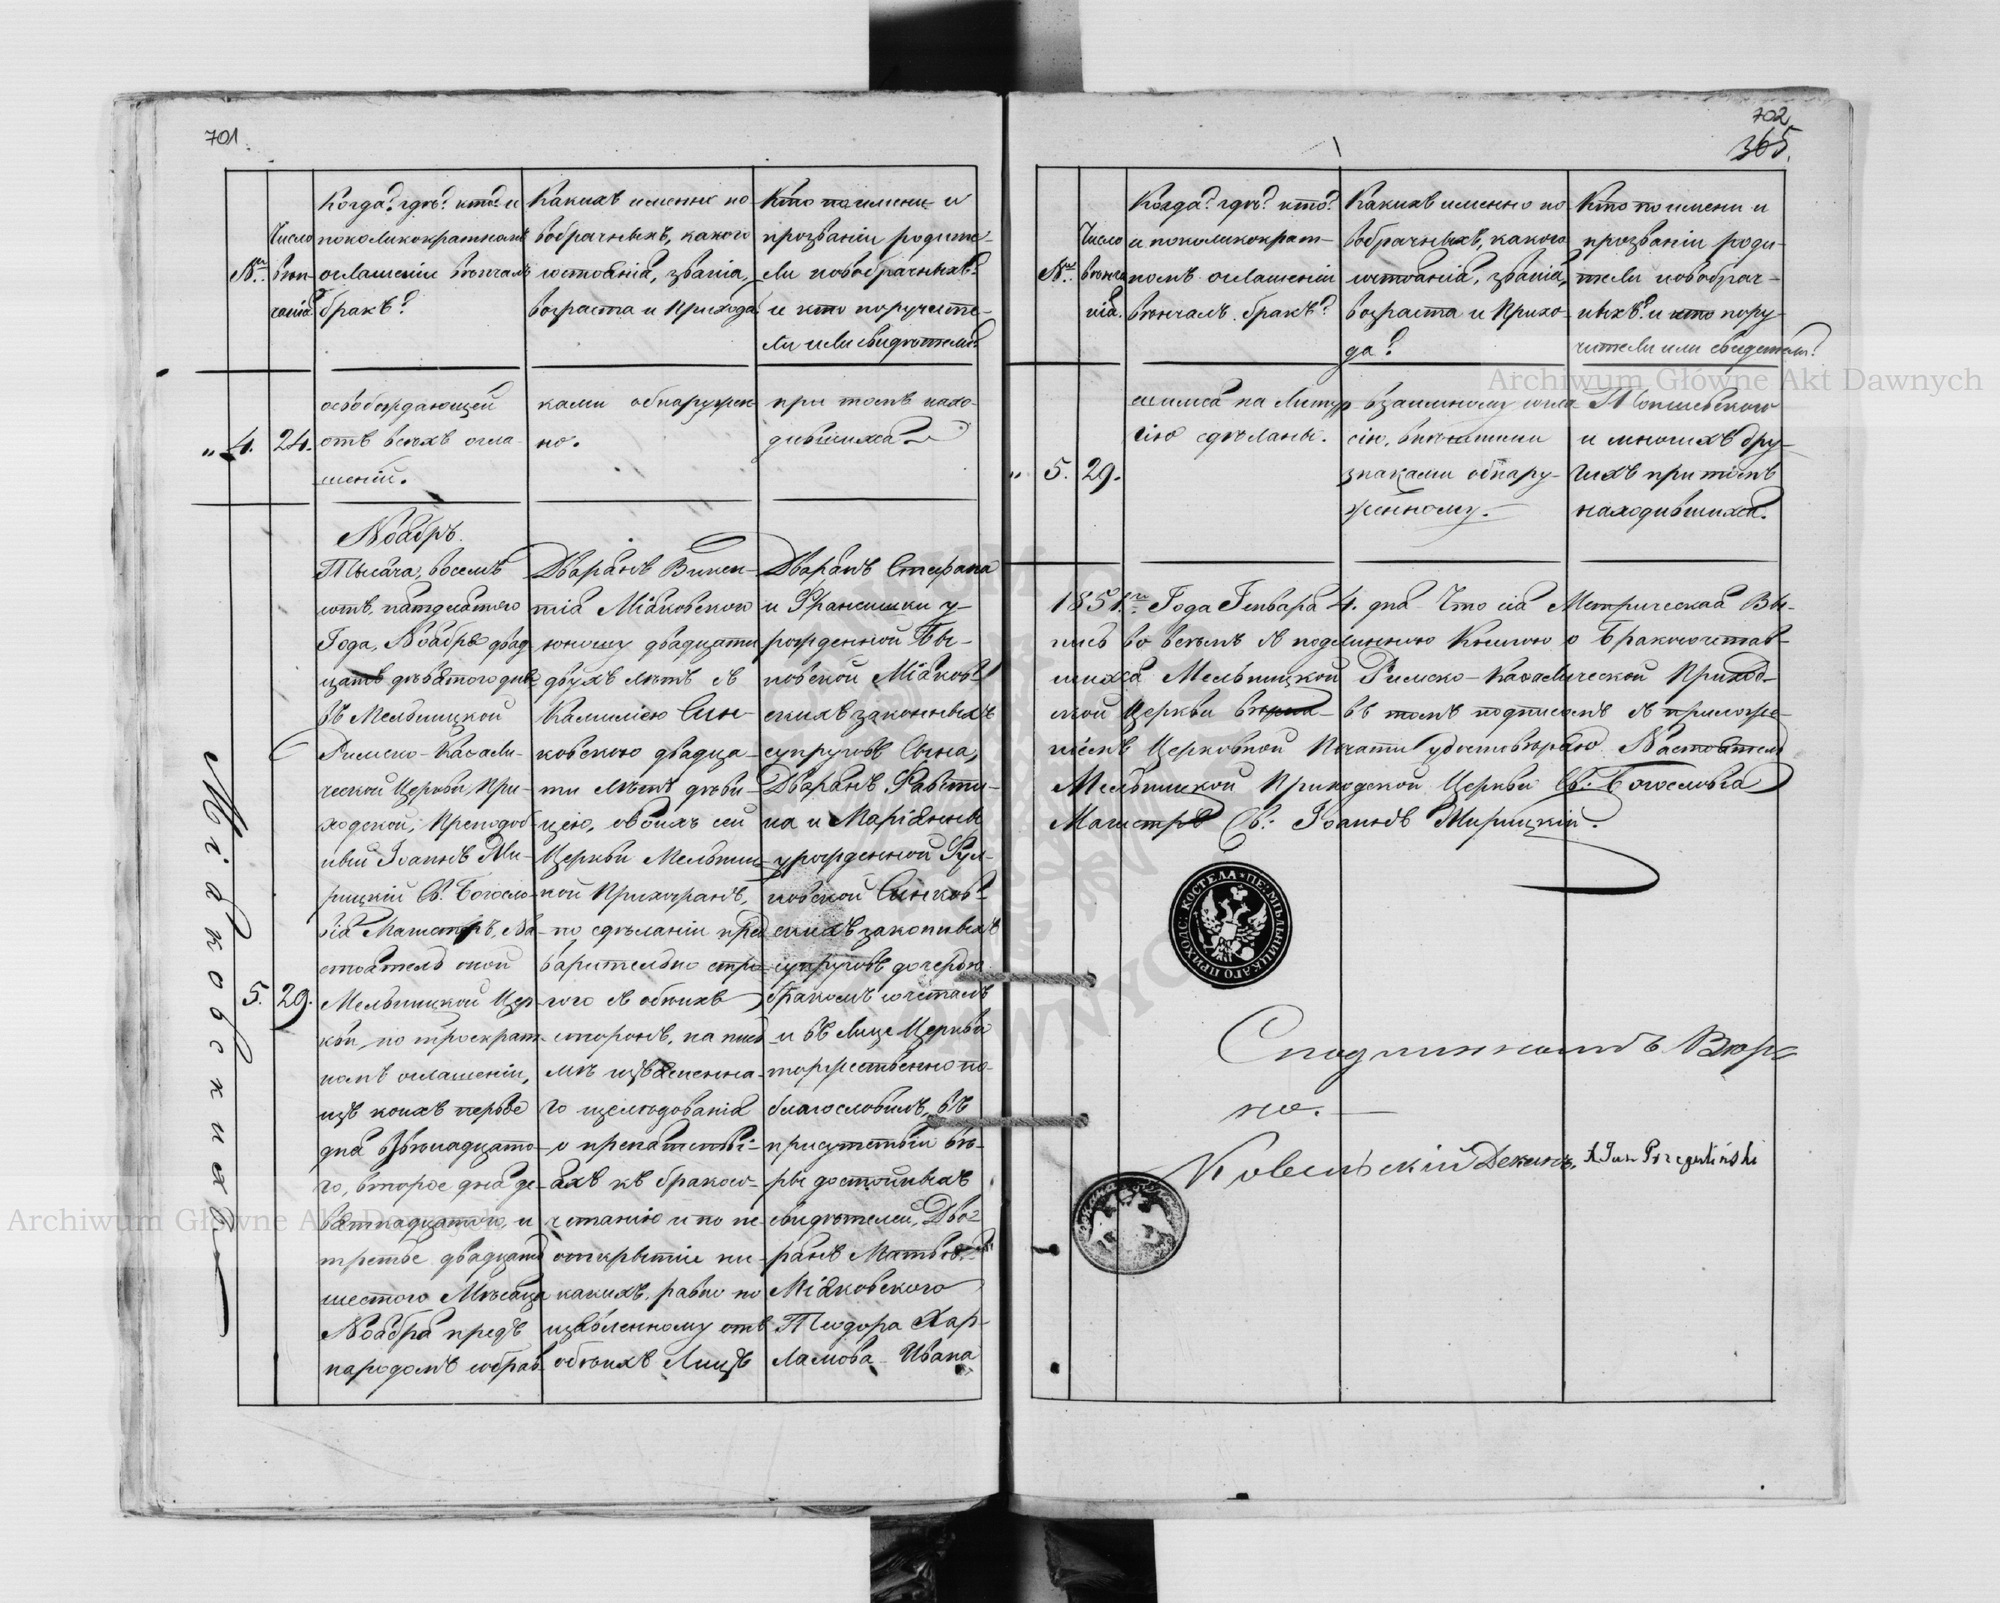 701
№
Число вѣн-
чанія.
Когда? гдѣ? кто? и
поколикократномъ
оглашеніи вѣнчалъ
бракъ?
Какихъ именно но-
вобрачныхъ, какого
состоянія, званія,
возраста и Прихода?
Кто по имени и
прозванію родите-
ли новобрачныхъ?
и кто поручите-
ли или свидѣтели?
„ 4. 24.
освобождающей
отъ всѣхъ огла-
шеній.
ками обнаружен-
но.
при томъ нахо-
дившихся.
Міяковскихъ
5. 29.
Ноябрь.
Тысяча, восемь
сотъ, пятдесятого
Года, Ноября двад-
цать девятого дня
въ Мельницкой
Римско-Каѳоли-
ческой Церкви При-
ходской, Преподоб-
ный Іоаннъ Ми-
рицкій Св. Богосло-
вія Магистръ, На-
стоятель оной
Мельницкой Цер-
кви, по троекрат-
номъ оглашеніи,
изъ коихъ первое
дня двѣнадцато-
го, второе дня де-
вятнадцатого, и
третье двадцать
шестого Мѣсяца
Ноября предъ
народомъ собрав-
Дворянъ Викен-
тія Міяковского
юношу двадцати
двухъ лѣтъ съ
Камилією Син-
ковскою двадца-
ти лѣтъ дѣви-
цею, обоихъ сей
Церкви Мельниц-
кой Прихожанъ,
по сдѣланіи пред-
варительно стро-
гого съ обѣихъ
сторонъ, на пись-
мѣ изъясненна-
го изслѣдованія
о препятстві-
яхъ къ бракосо-
четанію и по не-
открытіи ни-
какихъ, равно по
изъявленному отъ
обѣихъ Лицъ
Дворянъ Стефана
и Франсишки у-
рожденной Бы-
ковской Міяков-
скихъ законныхъ
супруговъ Сына,
Дворянъ Фавсти-
на и Маріянны
урожденной Рул-
ковской Синков-
скихъ законныхъ
супруговъ дочерью
бракомъ сочеталъ
и въ Лице Церкви
торжественно по-
благословилъ, въ
присутствіи вѣ-
ры достойныхъ
свидѣтелей, Дво-
рянъ Матвѣя
Міяковского
Теодора Хар-
ламова Ивана
702
365.
№
Число вѣнча-
нія.
Когда? гдѣ? кто?
и поколикократ-
номъ оглашеніи
вѣнчалъ бракъ?
Какихъ именно но-
вобрачныхъ, какого
состоянія, званія,
возраста и Прихо-
да?
Кто по имени и
прозванію роди-
тели новобрач-
ныхъ? и кто пору-
чители или свидетели?
„ 5. 29.
шимся на Литур-
гію сдѣланы.
взаимному согла-
сію, внѣшними
знаками обнару-
женному.
и многихъ дру-
гихъ при томъ
находившихся.
1851го Года Генваря 4. дня Что сія Метрическая Вы-
пись во всемъ съ подлинною Книгою о Бракосочетав-
шихся Мельницкой Римско-Каѳолической Приход-
ской Церкви вѣрна въ томъ подписомъ съ приложе-
ніемъ Церковной Печати удостовѣряю Настоятель
Мельницкой Приходской Церкви Св. Богословія
Магистръ Св: Іоаннъ Мирицкій.
С подлинномъ Вѣр-
но.
Ковельскій Деканъ,